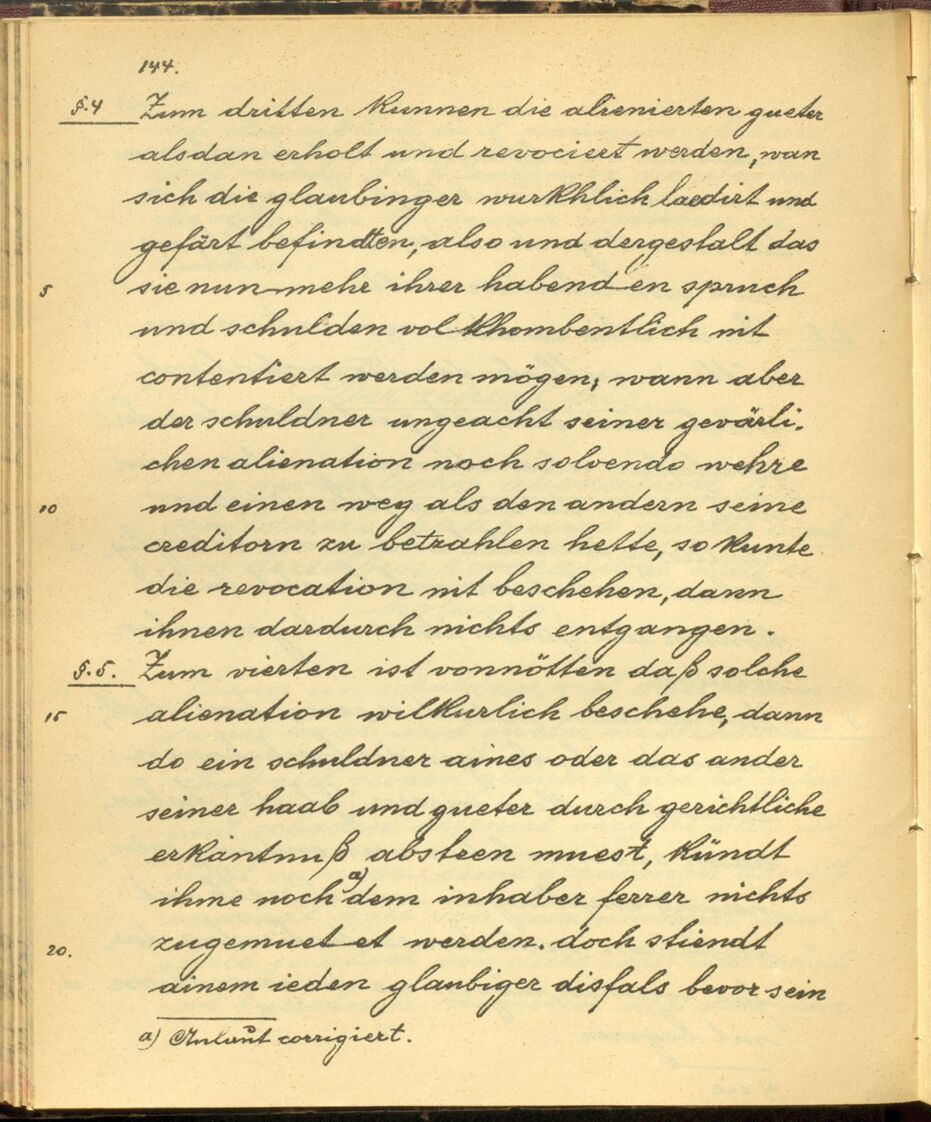 144.
§.4 Zum dritten kunnen die alienierten gueter
alsdan erholt und revociert werden, wan
sich die glaubinger wurkhlich laedirt und
gefärt befindten, also und dergestalt das
5 sie nun mehr ihrer habenden spruch
und schulden vol khombentlich nit
contentiert werden mögen; wann aber
der schuldner ungeacht seiner gevärli-
chen alienation noch solvendo wehre
10 und einen weg als den andern seine
creditorn zu betzahlen hette, so kunte
die revocation nit beschehen, dann
ihnen dardurch nichts entgangen.
§.5. Zum vierten ist vonnötten daß solche
15 alienation wilkurlich beschehe, dann
do ein schuldner aines oder das ander
seiner haab und gueter durch gerichtliche
erkantnuß absteen muest, kündt
ihme noch a) dem inhaber ferrer nichts
20. zugemuetet werden. doch stiendt
ainem ieden glaubiger disfals bevor sein
a) Anlaut corrigiert.